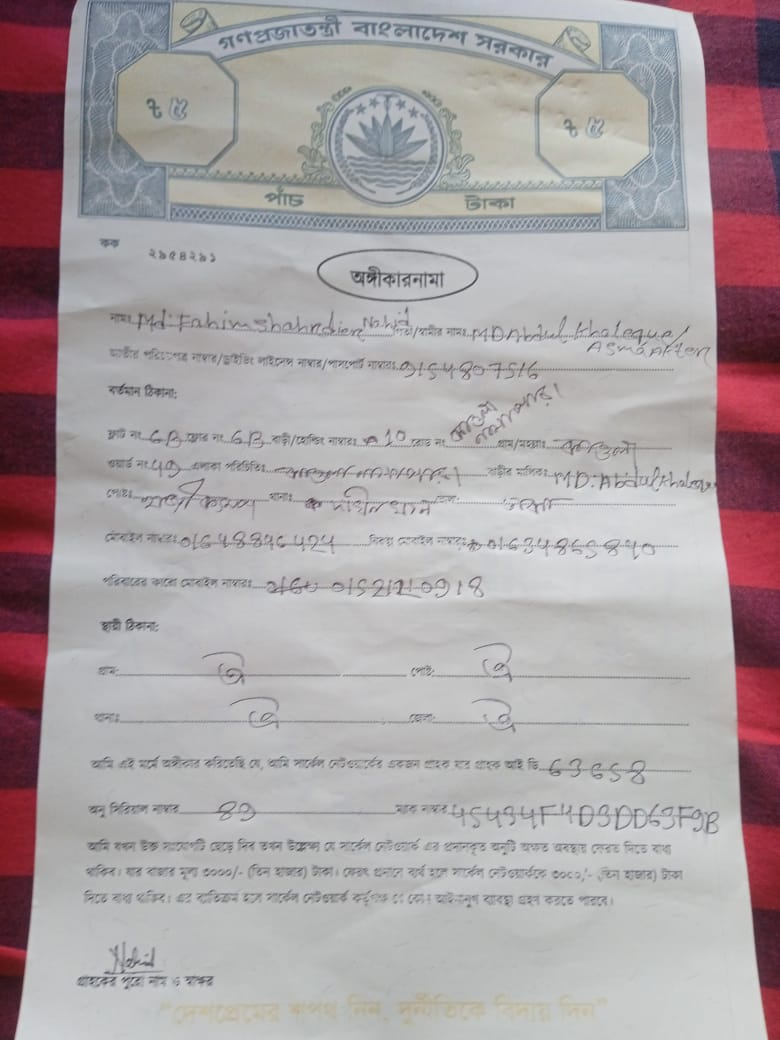 গণপ্রজাতন্ত্রী বাংলাদেশ সরকার
৳ ৫ ৳ ৫
পাঁচ টাকা
কক ২৯৫৪২৯১
অঙ্গীকারনামা
নামঃ Md: Fahim Shahria Nahid পিতা/স্বামীর নামঃ MD Abdul Khaleque/
Asma Akter
জাতীয় পরিচয়পত্র নাম্বার/ড্রাইভিং লাইসেন্স নাম্বার/পাসপোর্ট নাম্বারঃ 9154807516
বর্তমান ঠিকানা:
ফ্লাট নং 6B ফ্লোর নং 6B বাড়ী/হোল্ডিং নাম্বারঃ 10 রোড নং কাওলা নামাপাড়া। গ্রাম/মহল্লাঃ কাওলা
ওয়ার্ড নং 49 এলাকা পরিচিতিঃ কাওলা নামাপাড়া। বাড়ীর মালিকঃ MD: Abdul Khaleque
পোষ্টঃ হাজী ক্যাম্প থানাঃ দক্ষিনখান জেলাঃ ঢাকা
মোবাইল নাম্বারঃ 01648846424 বিকল্প মোবাইল নাম্বারঃ 01634865840
পরিবারের কারো মোবাইল নাম্বারঃ 01521210918
স্থায়ী ঠিকানা:
গ্রাম: ঐ পোষ্ট: ঐ
থানাঃ ঐ জেলাঃ ঐ
আমি এই মর্মে অঙ্গীকার করিতেছি যে, আমি সার্কেল নেটওয়ার্কের একজন গ্রাহক যার গ্রাহক আই ডি 63658
অনু সিরিয়াল নাম্বার 89 ম্যাক নাম্বার 45434F4D3DD63F9B
আমি যখন উক্ত সংযোগটি ছেড়ে দিব তখন উল্লেক্ষ্য যে সার্কেল নেটওয়ার্ক এর প্রদানকৃত অনুটি অক্ষত অবস্থায় ফেরত দিতে বাধ্য
থাকিব। যার বাজার মূল্য ৩০০০/- (তিন হাজার) টাকা। ফেরৎ প্রদানে ব্যর্থ হলে সার্কেল নেটওয়ার্ককে ৩০০০/- (তিন হাজার) টাকা
দিতে বাধ্য থাকিব। এর ব্যতিক্রম হলে সার্কেল নেটওয়ার্ক কর্তৃপক্ষ যে কোন আইনানুগ ব্যবস্থা গ্রহন করতে পারবে।
Nahid
গ্রাহকের পুরো নাম ও স্বাক্ষর
"দেশপ্রেমের শপথ নিন, দুর্নীতিকে বিদায় দিন"